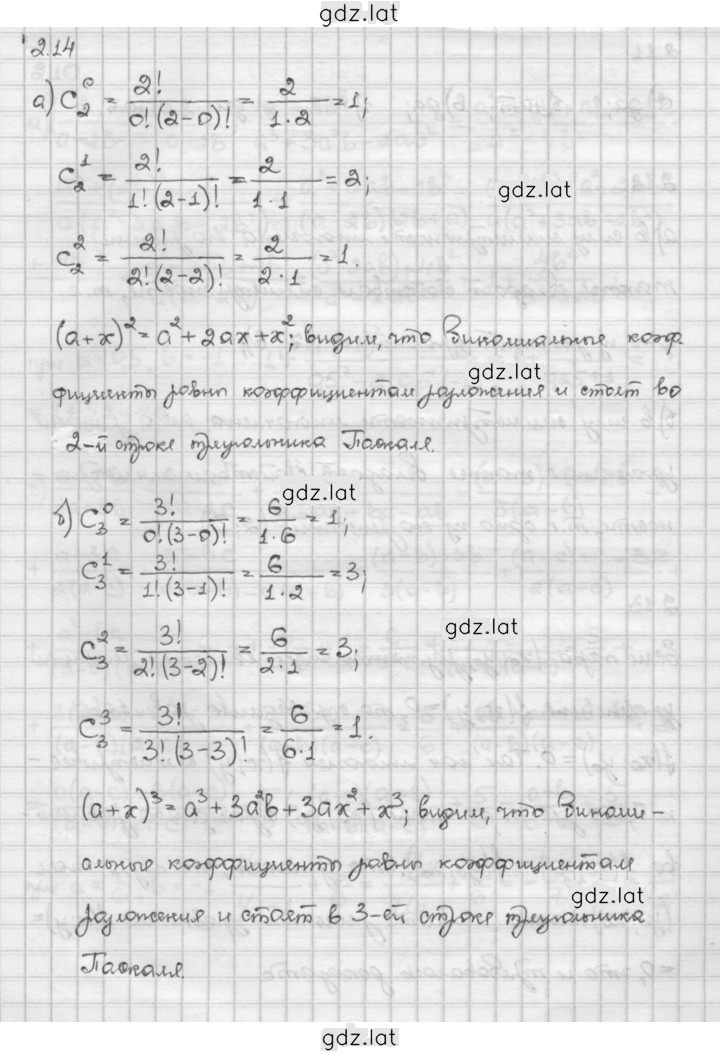 gdz.lat
2.14
а) C₂⁰ = 2!/(0!(2-0)!) = 2/(1·2) = 1;
C₂¹ = 2!/(1!(2-1)!) = 2/(1·1) = 2;
gdz.lat
C₂² = 2!/(2!(2-2)!) = 2/(2·1) = 1.
(a+x)² = a² + 2ax + x²; видим, что биномиальные коэф-
gdz.lat
фициенты равны коэффициентам разложения и стоят во
2-й строке треугольника Паскаля.
gdz.lat
б) C₃⁰ = 3!/(0!(3-0)!) = 6/(1·6) = 1;
C₃¹ = 3!/(1!(3-1)!) = 6/(1·2) = 3;
gdz.lat
C₃² = 3!/(2!(3-2)!) = 6/(2·1) = 3;
C₃³ = 3!/(3!(3-3)!) = 6/(6·1) = 1.
(a+x)³ = a³ + 3a²b + 3ax² + x³; видим, что биноми-
альные коэффициенты равны коэффициентам
gdz.lat
разложения и стоят в 3-ей строке треугольника
Паскаля.
gdz.lat